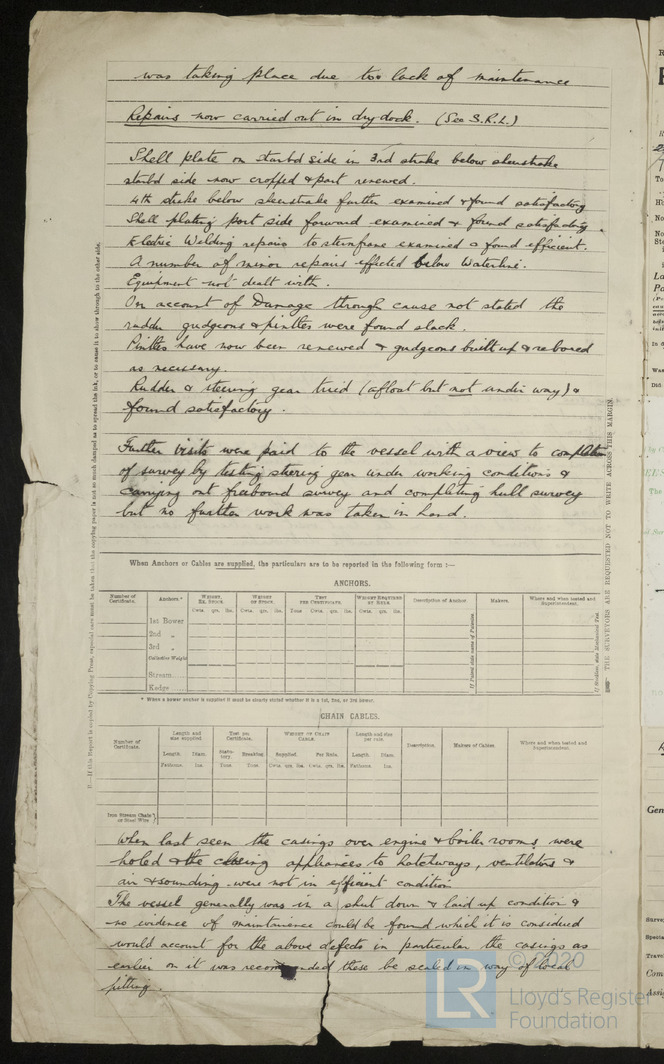 was taking place due to lack of maintenance
Repairs now carried out in drydock. (See S.R.L.)
Shell plate on starbd side in 3rd strake below sheerstrake
starbd side now cropped & part renewed.
4th strake below sheerstrake further examined & found satisfactory
Shell plating port side forward examined & found satisfactory.
Electric Welding repairs to sternframe examined & found efficient.
A number of minor repairs effected below Waterline.
Equipment not dealt with.
On account of Damage through cause not stated the
rudder gudgeons & pintles were found slack.
Pintles have now been renewed & gudgeons built up & rebored
as necessary.
Rudder & steering gear tried (afloat but not under way) &
found satisfactory.
Further visits were paid to the vessel with a view to completion
of survey by testing steering gear under working conditions &
carrying out freeboard survey and completing hull survey
but no further work was taken in hand.
When Anchors or Cables are supplied, the particulars are to be reported in the following form :—
ANCHORS.
Number of Certificate. Anchors.* WEIGHT, EX. STOCK. WEIGHT OF STOCK. TEST PER CERTIFICATE. WEIGHT REQUIRED BY RULE. Description of Anchor. Makers. Where and when tested and Superintendent.
Cwts. qrs. lbs. Cwts. qrs. lbs. Tons Cwts. qrs. lbs. Cwts. qrs. lbs.
1st Bower
2nd „
3rd „
Collective Weight
Stream
Kedge
* When a bower anchor is supplied it must be clearly stated whether it is a 1st, 2nd, or 3rd bower.
CHAIN CABLES.
Number of Certificate. Length and size supplied. Test per Certificate. WEIGHT OF CHAIN CABLE. Length and size per rule. Description. Makers of Cables. Where and when tested and Superintendent.
Length. Diam. Statutory. Breaking. Supplied. Per Rule. Length. Diam.
Fathoms. Ins. Tons. Tons. Cwts. qrs. lbs. Cwts. qrs. lbs. Fathoms. Ins.
Iron Stream Chain or Steel Wire
When last seen the casings over engine & boiler rooms were
holed & the closing appliances to hatchways, ventilators &
air & sounding were not in efficient condition
The vessel generally was in a shut down & laid up condition &
no evidence of maintainence could be found which it is considered
would account for the above defects in particular the casings as
earlier on it was recommended these be scaled in way of local
pitting.
THE SURVEYORS ARE REQUESTED NOT TO WRITE ACROSS THIS MARGIN.
© 2020
LR
Lloyd's Register
Foundation